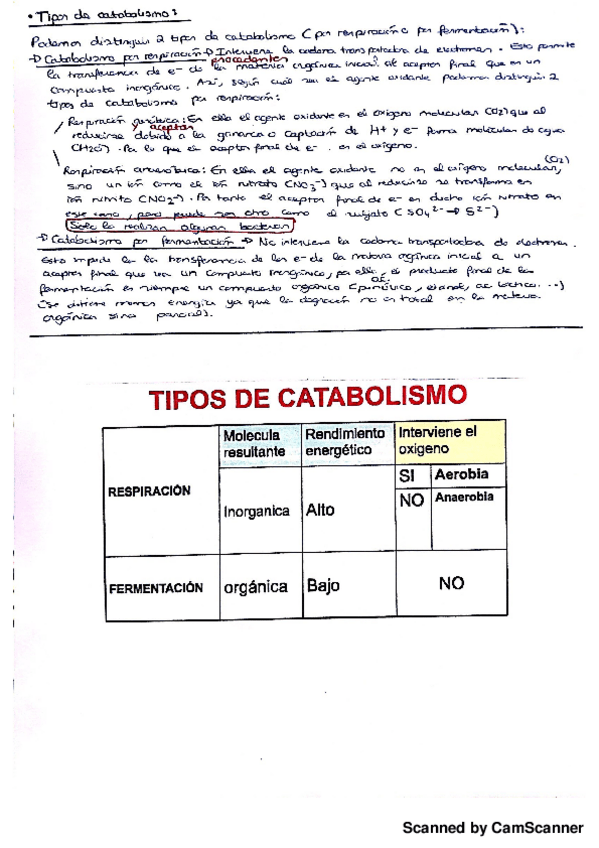 • Tipos de catabolismo:
Podemos distinguir 2 tipos de catabolismo (por respiración o por fermentación):
→ Catabolismo por respiración → Interviene la cadena transportadora de electrones. Esto permite
procedentes
la transferencia de e- de la materia orgánica inicial al aceptor final que es un
compuesto inorgánico. Así, según cual sea el agente oxidante podemos distinguir 2
tipos de catabolismo por respiración:
Respiración aeróbica: En ella el agente oxidante es el oxígeno molecular (O2) que al
y aceptor
reducirse debido a la ganancia o captación de H+ y e- forma moléculas de agua
(H2O). Por lo que el aceptor final de e- es el oxígeno.
Respiración anaeróbica: En ella el agente oxidante no es el oxígeno molecular, (O2)
sino un ión como el ión nitrato (NO3-) que al reducirse se transforma en
ión nitrito (NO2-). Por tanto el aceptor final de e- es dicho ión nitrato en
este caso, pero puede ser otro como el sulfato (SO4 2- → S2-)
Solo lo realizan algunas bacterias
→ Catabolismo por fermentación → No interviene la cadena transportadora de electrones.
Esto impide la transferencia de los e- de la materia orgánica inicial a un
aceptor final que sea un compuesto inorgánico, por ello, el producto final de la
fermentación es siempre un compuesto orgánico (pirúvico, etanol, ac láctico...)
(se obtiene menos energía ya que la degradación no es total en la materia
orgánica sino parcial).
TIPOS DE CATABOLISMO
Molecula resultante Rendimiento energético Interviene el oxigeno
RESPIRACIÓN Inorganica Alto SI Aerobia
NO Anaerobia
FERMENTACIÓN orgánica Bajo NO
Scanned by CamScanner